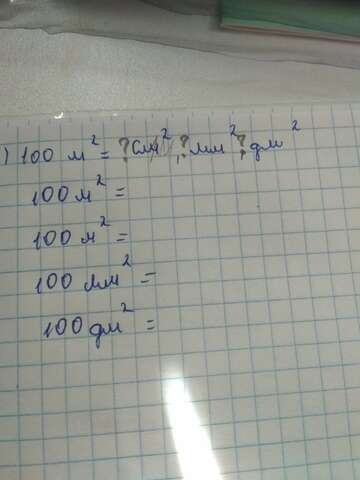 ) 100 м² = ? см², ? мм² ? дм²
100 м² =
100 м² =
100 мм² =
100 дм² =